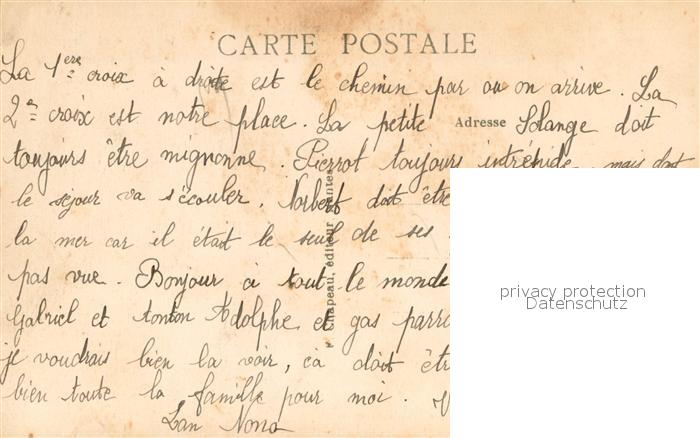 CARTE POSTALE
La 1ère croix à droite est le chemin par ou on arrive. La
2e croix est notre place. La petite Solange doit
Adresse
toujours être mignonne. Pierrot toujours intrépide mais doit
le séjour va s'écouler. Norbert doit être
la mer car il était le seul de ses
pas vue. Bonjour à tout le monde
Gabriel et tonton Adolphe et gas
je voudrais bien la voir, ça doit êtr
bien toute la famille pour moi.
Chapeau, éditeur, Nantes
privacy protection
Datenschutz